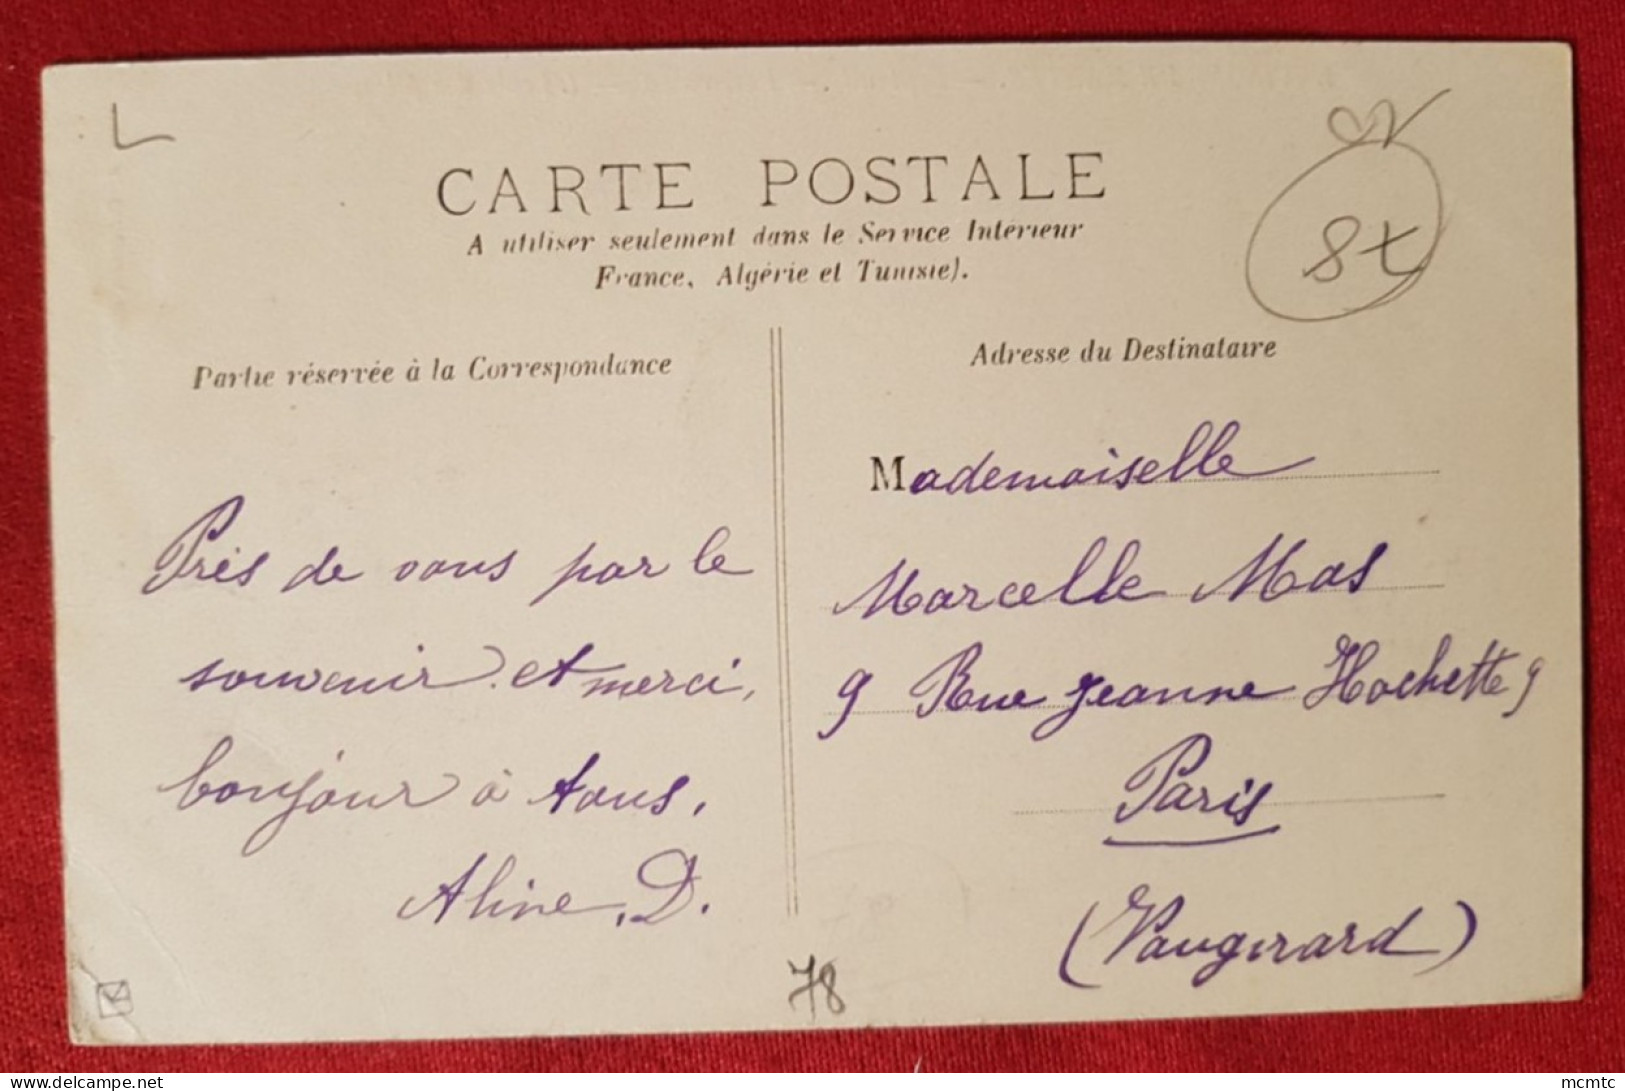 CARTE POSTALE
A utiliser seulement dans le Service Intérieur
France, Algérie et Tunisie).
Partie réservée à la Correspondance
Adresse du Destinataire
Près de vous par le
souvenir et merci,
bonjour à tous.
Aline. D.
Mademoiselle
Marcelle Mas
9 Rue Jeanne Hachette 9
Paris
(Vaugirard)
78
delcampe.net
mcmtc